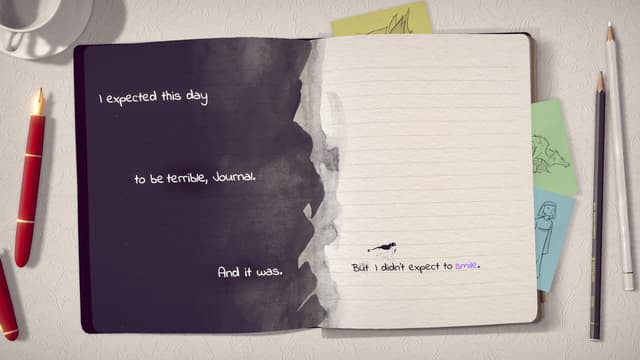 I expected this day
to be terrible, Journal.
And it was.
But I didn't expect to smile.